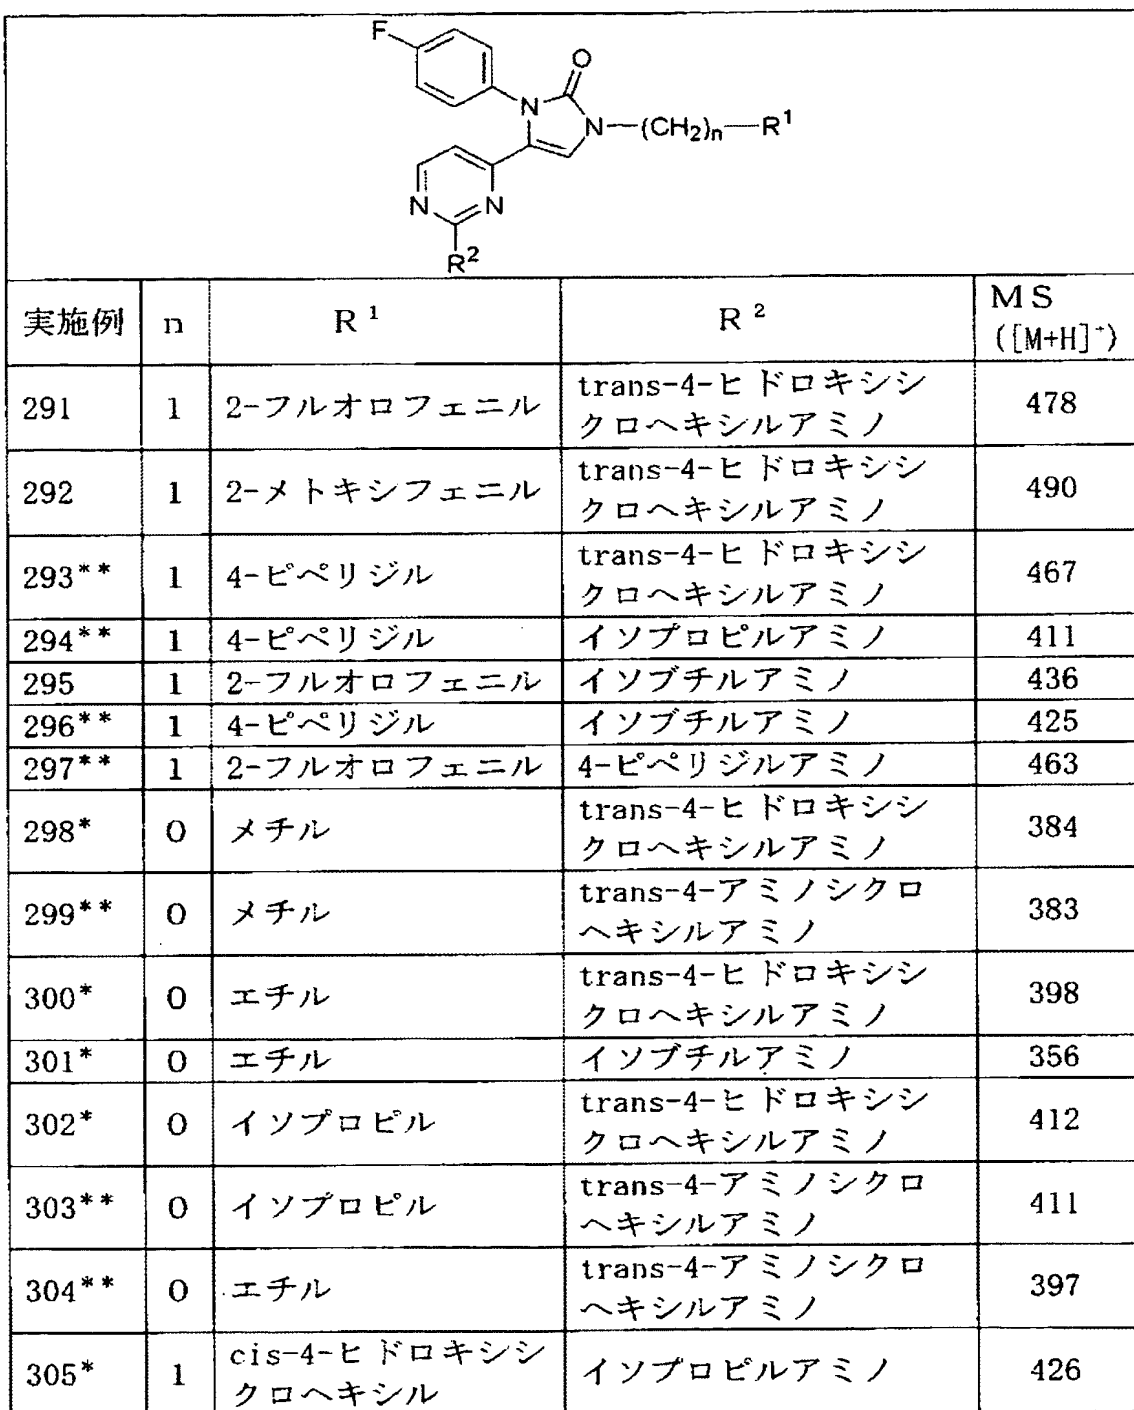 F
O
N
N—(CH₂)ₙ—R¹
N
N
R²
実施例 n R¹ R² MS ([M+H]⁺)
291 1 2-フルオロフェニル trans-4-ヒドロキシシ
クロヘキシルアミノ 478
292 1 2-メトキシフェニル trans-4-ヒドロキシシ
クロヘキシルアミノ 490
293** 1 4-ピペリジル trans-4-ヒドロキシシ
クロヘキシルアミノ 467
294** 1 4-ピペリジル イソプロピルアミノ 411
295 1 2-フルオロフェニル イソブチルアミノ 436
296** 1 4-ピペリジル イソブチルアミノ 425
297** 1 2-フルオロフェニル 4-ピペリジルアミノ 463
298* 0 メチル trans-4-ヒドロキシシ
クロヘキシルアミノ 384
299** 0 メチル trans-4-アミノシクロ
ヘキシルアミノ 383
300* 0 エチル trans-4-ヒドロキシシ
クロヘキシルアミノ 398
301* 0 エチル イソブチルアミノ 356
302* 0 イソプロピル trans-4-ヒドロキシシ
クロヘキシルアミノ 412
303** 0 イソプロピル trans-4-アミノシクロ
ヘキシルアミノ 411
304** 0 エチル trans-4-アミノシクロ
ヘキシルアミノ 397
305* 1 cis-4-ヒドロキシシ
クロヘキシル イソプロピルアミノ 426